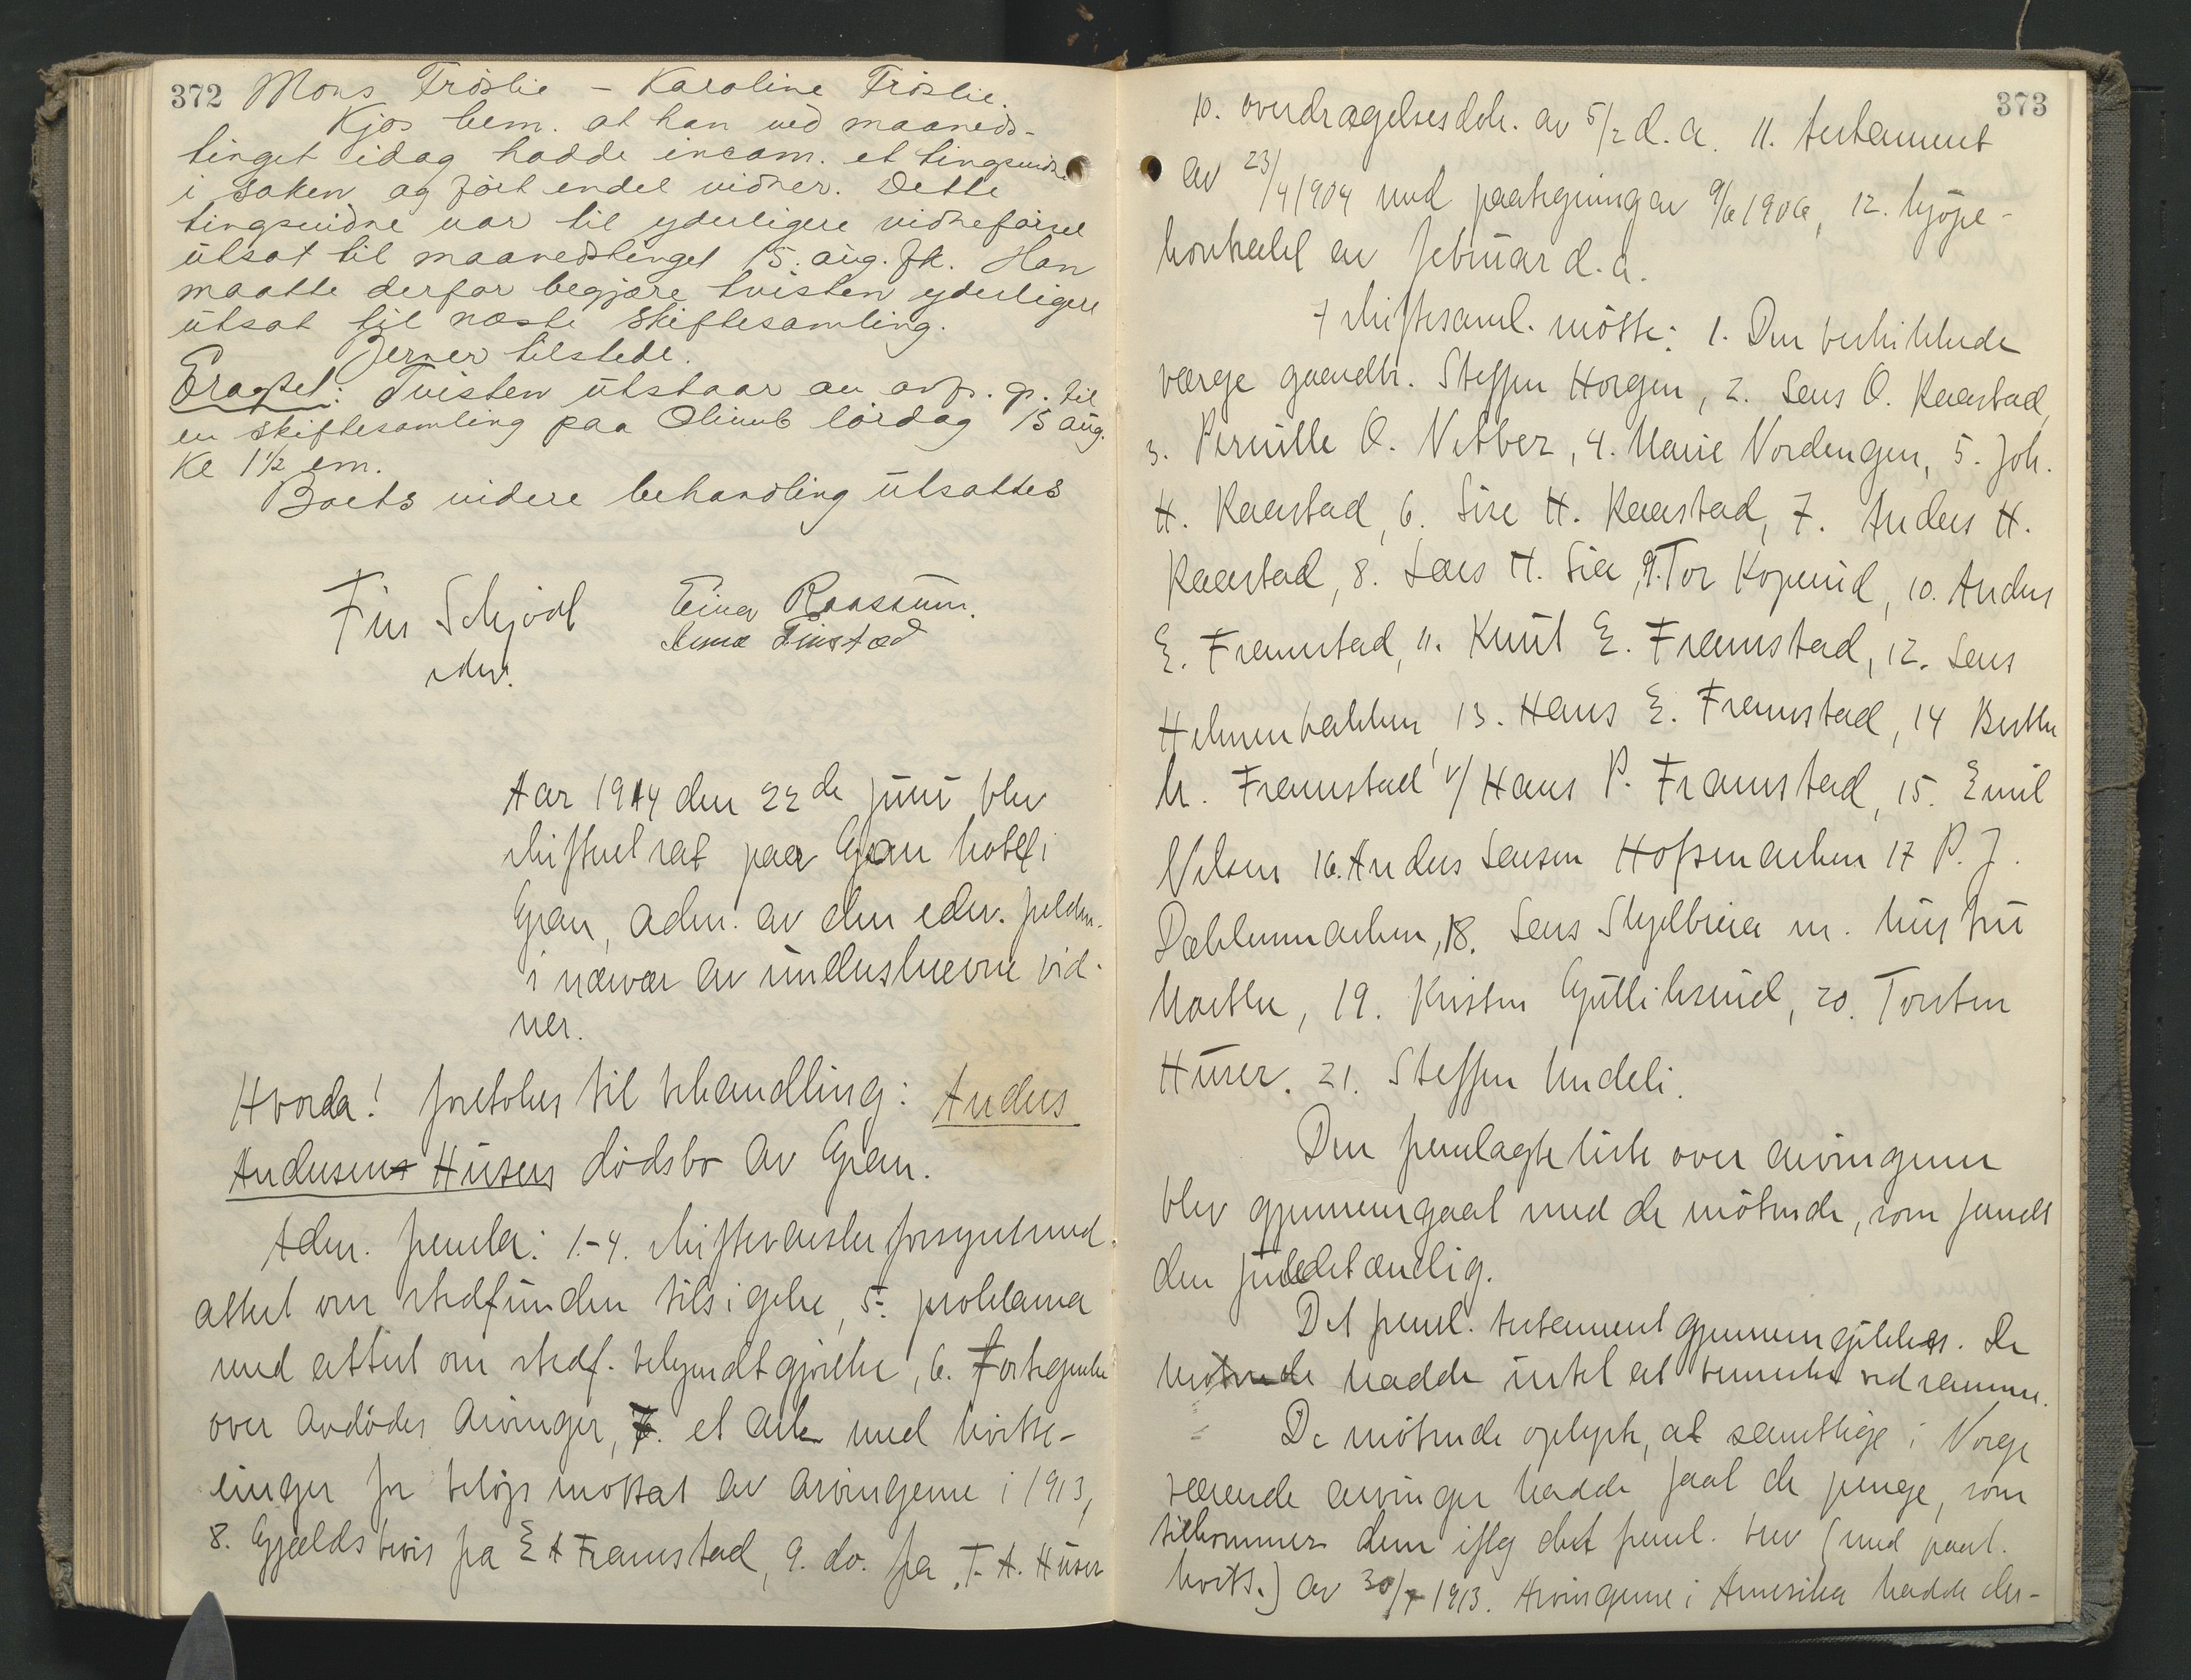 372 Mons Tröslie - Karoline Tröslie.
Kjos bem. at han ved maaneds-
tinget idag hadde incam. et tingsvidne
i saken og fört endel vidner. Dette
tingsvidne var til yderligere vidneförsel
utsat til maanedstinget 15. aug. fk. Han
maatte derfor begjære tvisten yderligere
utsat til næste skiftesamling.
Berner tilstede.
Eragtet: Tvisten utstaar au avf. p. til
en skiftesamling paa Olimb lördag 15 aug.
Kl 1½ em.
Boets videre behandling utsattes
Fin Schjödt Einar Raassum.
edsv. Anna Finstad
Aar 1914 den 22de juni blev
skifteret sat paa Gran hotel i
Gran, adm. av den edsv. fuldm.
i nærvær av underskrevne vid-
ner.
Hvorda! foretokes til behandling: Anders
Andersens Husers dödsbo av Gran.
Adm. freml.: 1.-4. skiftevarsler forsynt med
attest om stedfunden tilsigelse, 5. proklama
med attest om stedf. bekjendtgjörelse, 6. Fortegnelse
over avdödes arvinger, 7. et ark med kvitte-
ringer for belöp mottat av arvingerne i 1913,
8. Gjældsbevis fra E A Framstad, 9. do. fra T. A. Huser
373
10. overdragelsesdok. av 5/2 d. a. 11. testament
av 23/4 1904 med paategning av 9/6 1906, 12. kjöpe-
kontrakt av februar d. a.
I skiftesaml. mötte: 1. Den beskikkede
værge gaardbr. Steffen Horgen, 2. Lars O. Kaastad,
3. Pernille O. Vebber, 4. Marie Nordengen, 5. Joh.
H. Kaastad, 6. Sise H. Kaastad, 7. Anders H.
Kaastad, 8. Lars H. Lia, 9. Tor Koperud, 10. Anders
E. Framstad, 11. Knut E. Framstad, 12. Lars
Helmenbakken, 13. Hans E. Framstad, 14 Berthe
M. Framstad v/ Hans P. Framstad, 15. Emil
Nelsen 16. Anders Larsen Hofsmarken 17 P. J.
Dæhlenmarken, 18. Lars Skjelbreia m. hustru
Marthe, 19. Kristen Gulliksrud, 20. Torsten
Huser. 21. Steffen Undeli.
Den fremlagte liste over arvingerne
blev gjennemgaat med de mötende, som fandt
den fuldstændig.
Det freml. testament gjennemgikkes. De
mötende hadde intet at bemerke ved samme.
De mötende oplyste, at samtlige i Norge
værende arvinger hadde faat de penge, som
tilkommer dem iflg det freml. brev (med paat.
kvitt.) av 30/7 1913. Arvingerne i Amerika hadde der-